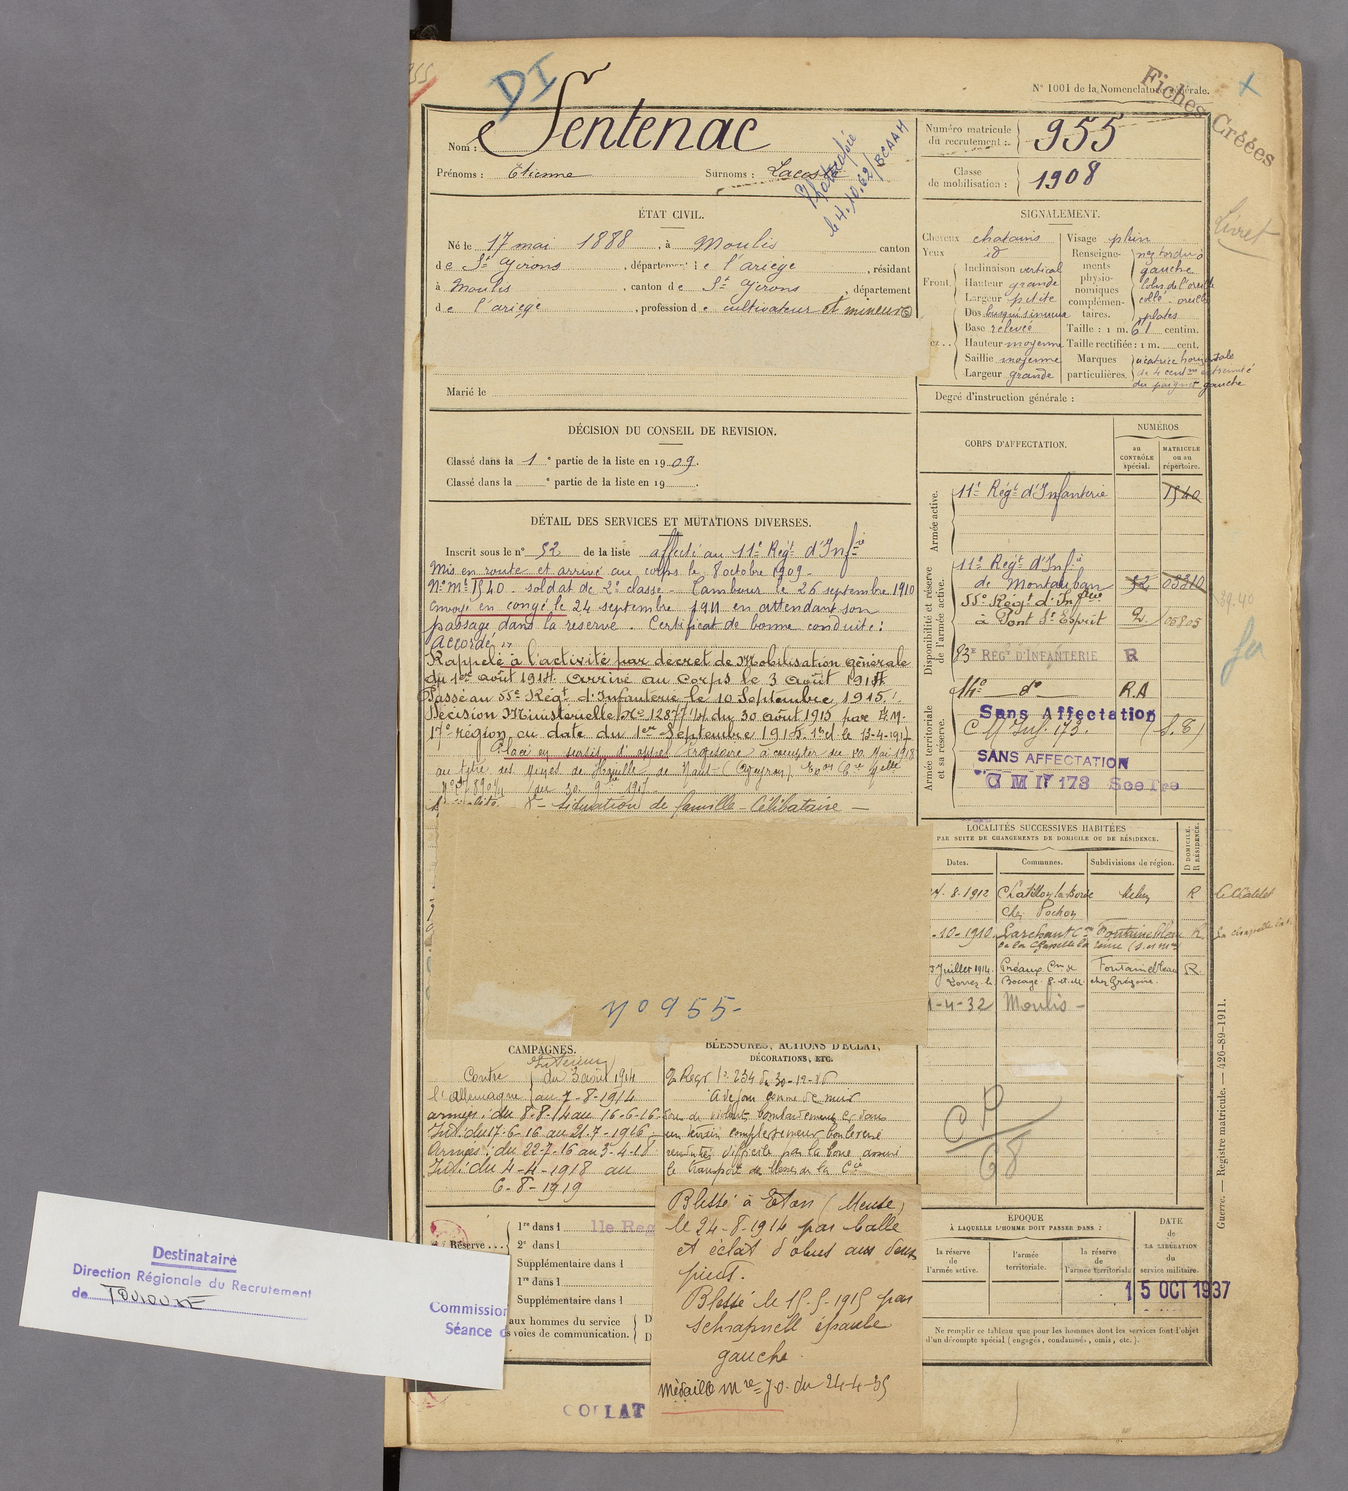 DI
N° 1001 de la Nomenclature générale.
Fiches Créées
Nom : Sentenac
Prénoms : Étienne Surnoms : Lacoste
Photocopié
le 4.10.62/BCAAM
Numéro matricule du recrutement : 955
Classe de mobilisation : 1908
ÉTAT CIVIL.
Né le 17 mai 1888, à Moulis canton
de St Girons, département de l'ariège, résidant
à Moulis, canton de St Girons, département
de l'ariège, profession de cultivateur et mineur
Marié le
SIGNALEMENT.
Cheveux chatains
Yeux id
Front
Inclinaison vertical
Hauteur grande
Largeur petite
Dos busqué sinueux
Base relevée
Hauteur moyenne
Saillie moyenne
Largeur grande
Visage plein
Renseignements physionomiques complémentaires.
nez tordu à
gauche
lobes de l'oreille
collé - oreilles
plates
Taille : 1 m. 61 centim.
Taille rectifiée : 1 m. cent.
Marques particulières.
cicatrice horizontale
de 4 cent
du poignet gauche
Degré d'instruction générale :
Livret
DÉCISION DU CONSEIL DE REVISION.
Classé dans la 1e partie de la liste en 1909.
Classé dans la e partie de la liste en 19 .
DÉTAIL DES SERVICES ET MUTATIONS DIVERSES.
Inscrit sous le n° 52 de la liste affecté au 11e Régt d'Infie
Mis en route et arrivé au corps le 8 octobre 1909.
N° Mle 1540 - soldat de 2e classe - Tambour le 26 septembre 1910
envoyé en congé le 24 septembre 1911 en attendant son
passage dans la réserve. Certificat de bonne conduite :
Accordé.
Rappelé à l'activité par décret de Mobilisation générale
du 1er août 1914. Arrivé au Corps le 3 Août 1914.
Passé au 55e Régt d'Infanterie le 10 Septembre 1915.
Décision Ministérielle No 12877 du 30 août 1915 par
17e région en date du 1er Septembre 1915.
Placé en sursis d'appel à compter du 10 Mai 1918
au titre des Mines de
situation de famille - Célibataire -
n° 955-
CORPS D'AFFECTATION.
NUMÉROS
au CONTRÔLE spécial.
MATRICULE ou au répertoire.
Armée active.
11e Régt d'Infanterie 1540
Disponibilité et réserve de l'armée active.
11e Régt d'Infie
de Montauban 52 03310
55e Régt d'Infie
à Pont St Esprit
83E REGt D'INFANTERIE R
14e - do - R.A
Armée territoriale et sa réserve.
Sans Affectation
C M Inf. 173. (S.8)
SANS AFFECTATION
C M I 173
LOCALITÉS SUCCESSIVES HABITÉES
PAR SUITE DE CHANGEMENTS DE DOMICILE OU DE RÉSIDENCE.
Dates.
Communes.
Subdivisions de région.
D DOMICILE. R RÉSIDENCE.
8-1912 Chatillon la Borde Melun R
chez Pochon
-10-1910 Larchant Fontainebleau R
Juillet 1914 Préaux Fontainebleau R
Bocage S.-et-M. chez Grégoire
1-4-32 Moulis -
CP
68
CAMPAGNES.
Intérieur
Contre
l'Allemagne
du 3 août 1914
au 7-8-1914
armées : du 8-8-14 au 16-6-16
Int : du 17-6-16 au 21-7-1916
Armées : du 22-7-16 au 3-4-18
Int : du 4-4-1918 au
6-8-1919
BLESSURES, ACTIONS D'ÉCLAT,
DÉCORATIONS, ETC.
Régt 234 du 30-12-16
bombardements et dans
un terrain complètement bouleversé
difficile par la boue assuré
le transport de
Blessé à Eton (Meuse)
le 24-8-1914 par balle
et éclat d'obus aux deux
pieds.
Blessé le 15-5-1915 par
schrapnell épaule
gauche.
Médaille Mre J.O. du 24-4-35
Réserve
1re dans l 11e Reg
2e dans l
Supplémentaire dans l
1re dans l
Supplémentaire dans l
aux hommes du service
s voies de communication.
ÉPOQUE
À LAQUELLE L'HOMME DOIT PASSER DANS :
la réserve de l'armée active.
l'armée territoriale.
la réserve de l'armée territoriale
DATE
de
LA LIBÉRATION
du
service militaire.
15 OCT 1937
Ne remplir ce tableau que pour les hommes dont les services font l'objet
d'un décompte spécial (engagés, condamnés, omis, etc.).
Guerre. — Registre matricule. — 426-89-1911.
Destinataire
Direction Régionale du Recrutement
de TOULOUSE
Commission
Séance d
COLLAT